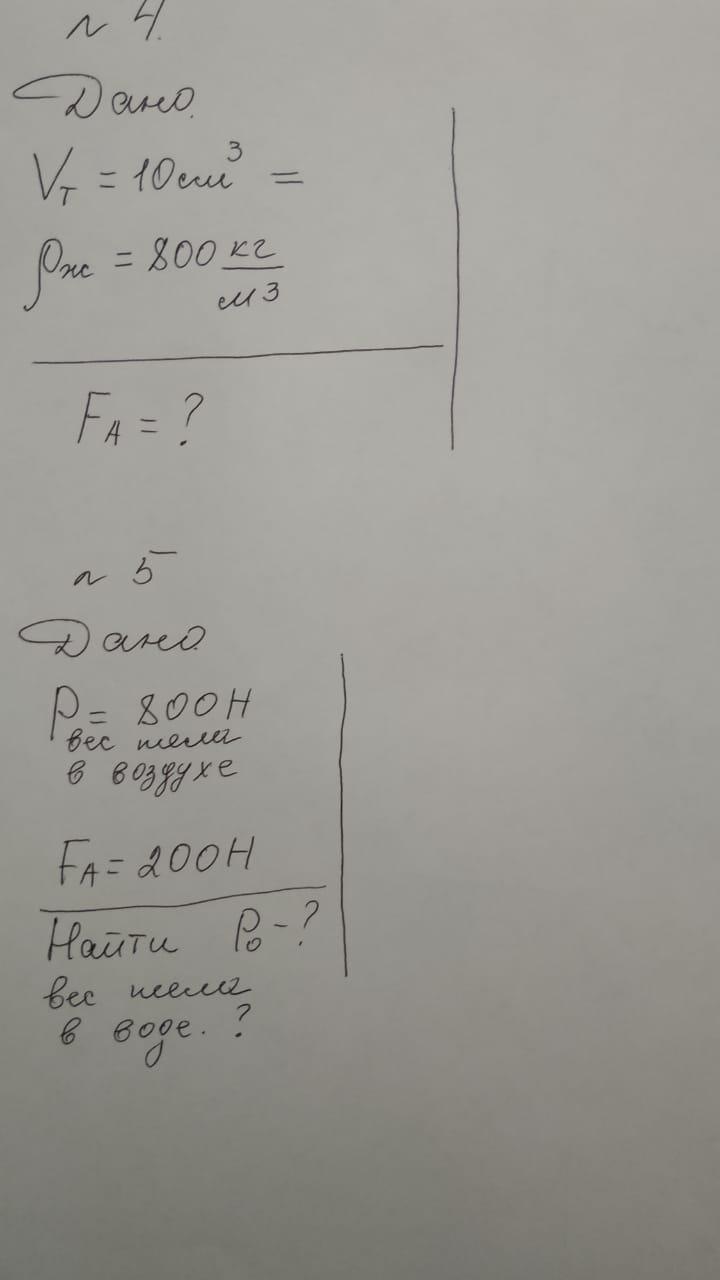 N 4.
Дано.
Vт = 10см³ =
ρж = 800 кг
м3
FА = ?
N 5
Дано
P = 800Н
вес тела
в воздухе
FА = 200Н
Найти P₀ - ?
вес тела
в воде. ?